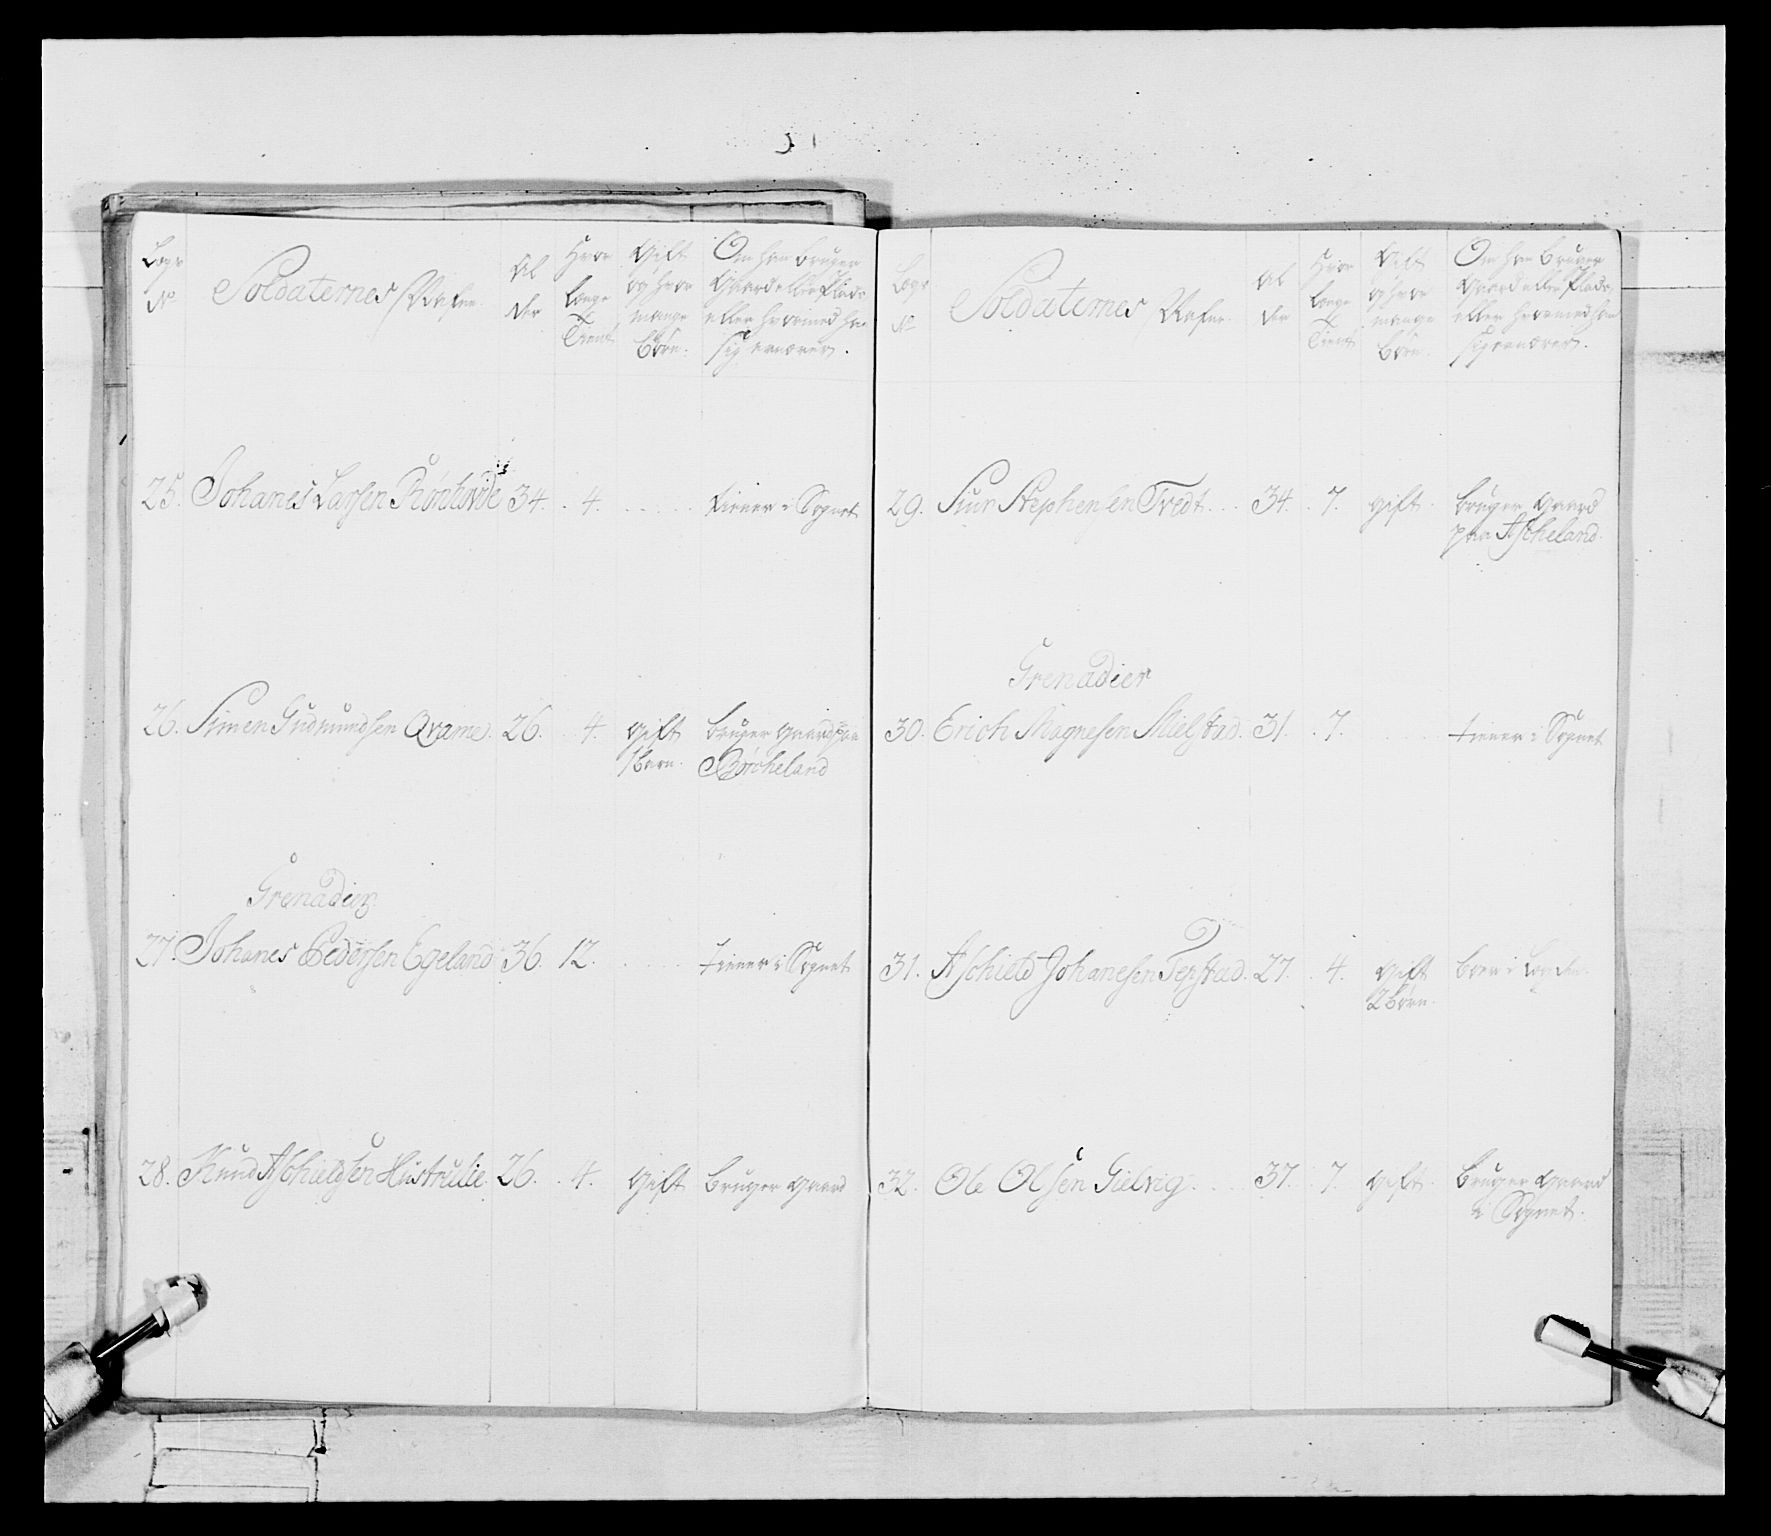 Lægs
No
Soldaternes Nafne
Al
der
Hvor
længe
Tient
Gift
og hvor
mange
Børn.
Om han bruger
Gaard eller Plads
eller hvormed han
sig ernærer.
25. Johanes Larsen Rønhovde 34. 4. tiener i Sognet
26. Simen Gudmundsen Qvame. 26. 4. gift bruger gaard paa
1 barn. Børcheland
Grenadier
27. Johanes Pedersen Egeland 36. 12. tiener i Sognet
28. Knud Aschieldsen Hustrulie 26. 4. gift bruger gaard
Lægs
No
Soldaternes Nafne
Al
der
Hvor
længe
Tient
Gift
og hvor
mange
Børn.
Om han bruger
Gaard eller Plads
eller hvormed han
sig ernærer.
29. Siur Stephensen Tvedt. 34. 7. gift. bruger gaard
paa Ascheland.
Grenadier
30. Erich Magnesen Mielstad. 31. 7. tiener i Sognet
31. Aschield Johanesen Tepstad. 27. 4. gift boer i
2 børn.
32. Ole Olsen Gielvig. 37. 7. gift. bruger gaard
i Sognet.